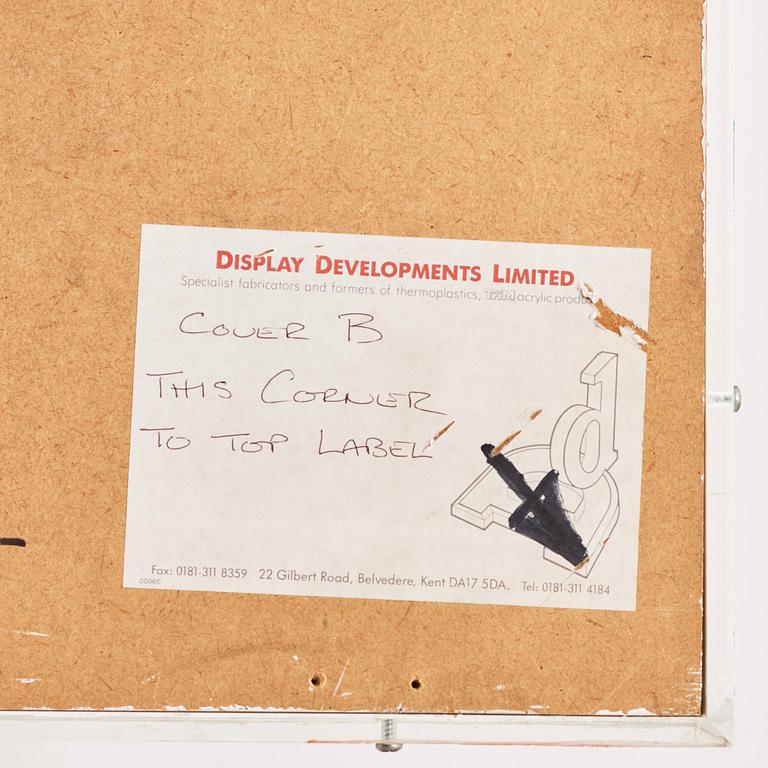 DISPLAY DEVELOPMENTS LIMITED
Specialist fabricators and formers of thermoplastics, acrylic
COVER B
THIS CORNER
TO TOP LABEL
Fax: 0181-311 8359 22 Gilbert Road, Belvedere, Kent DA17 5DA. Tel: 0181-311 4184
DD08/C